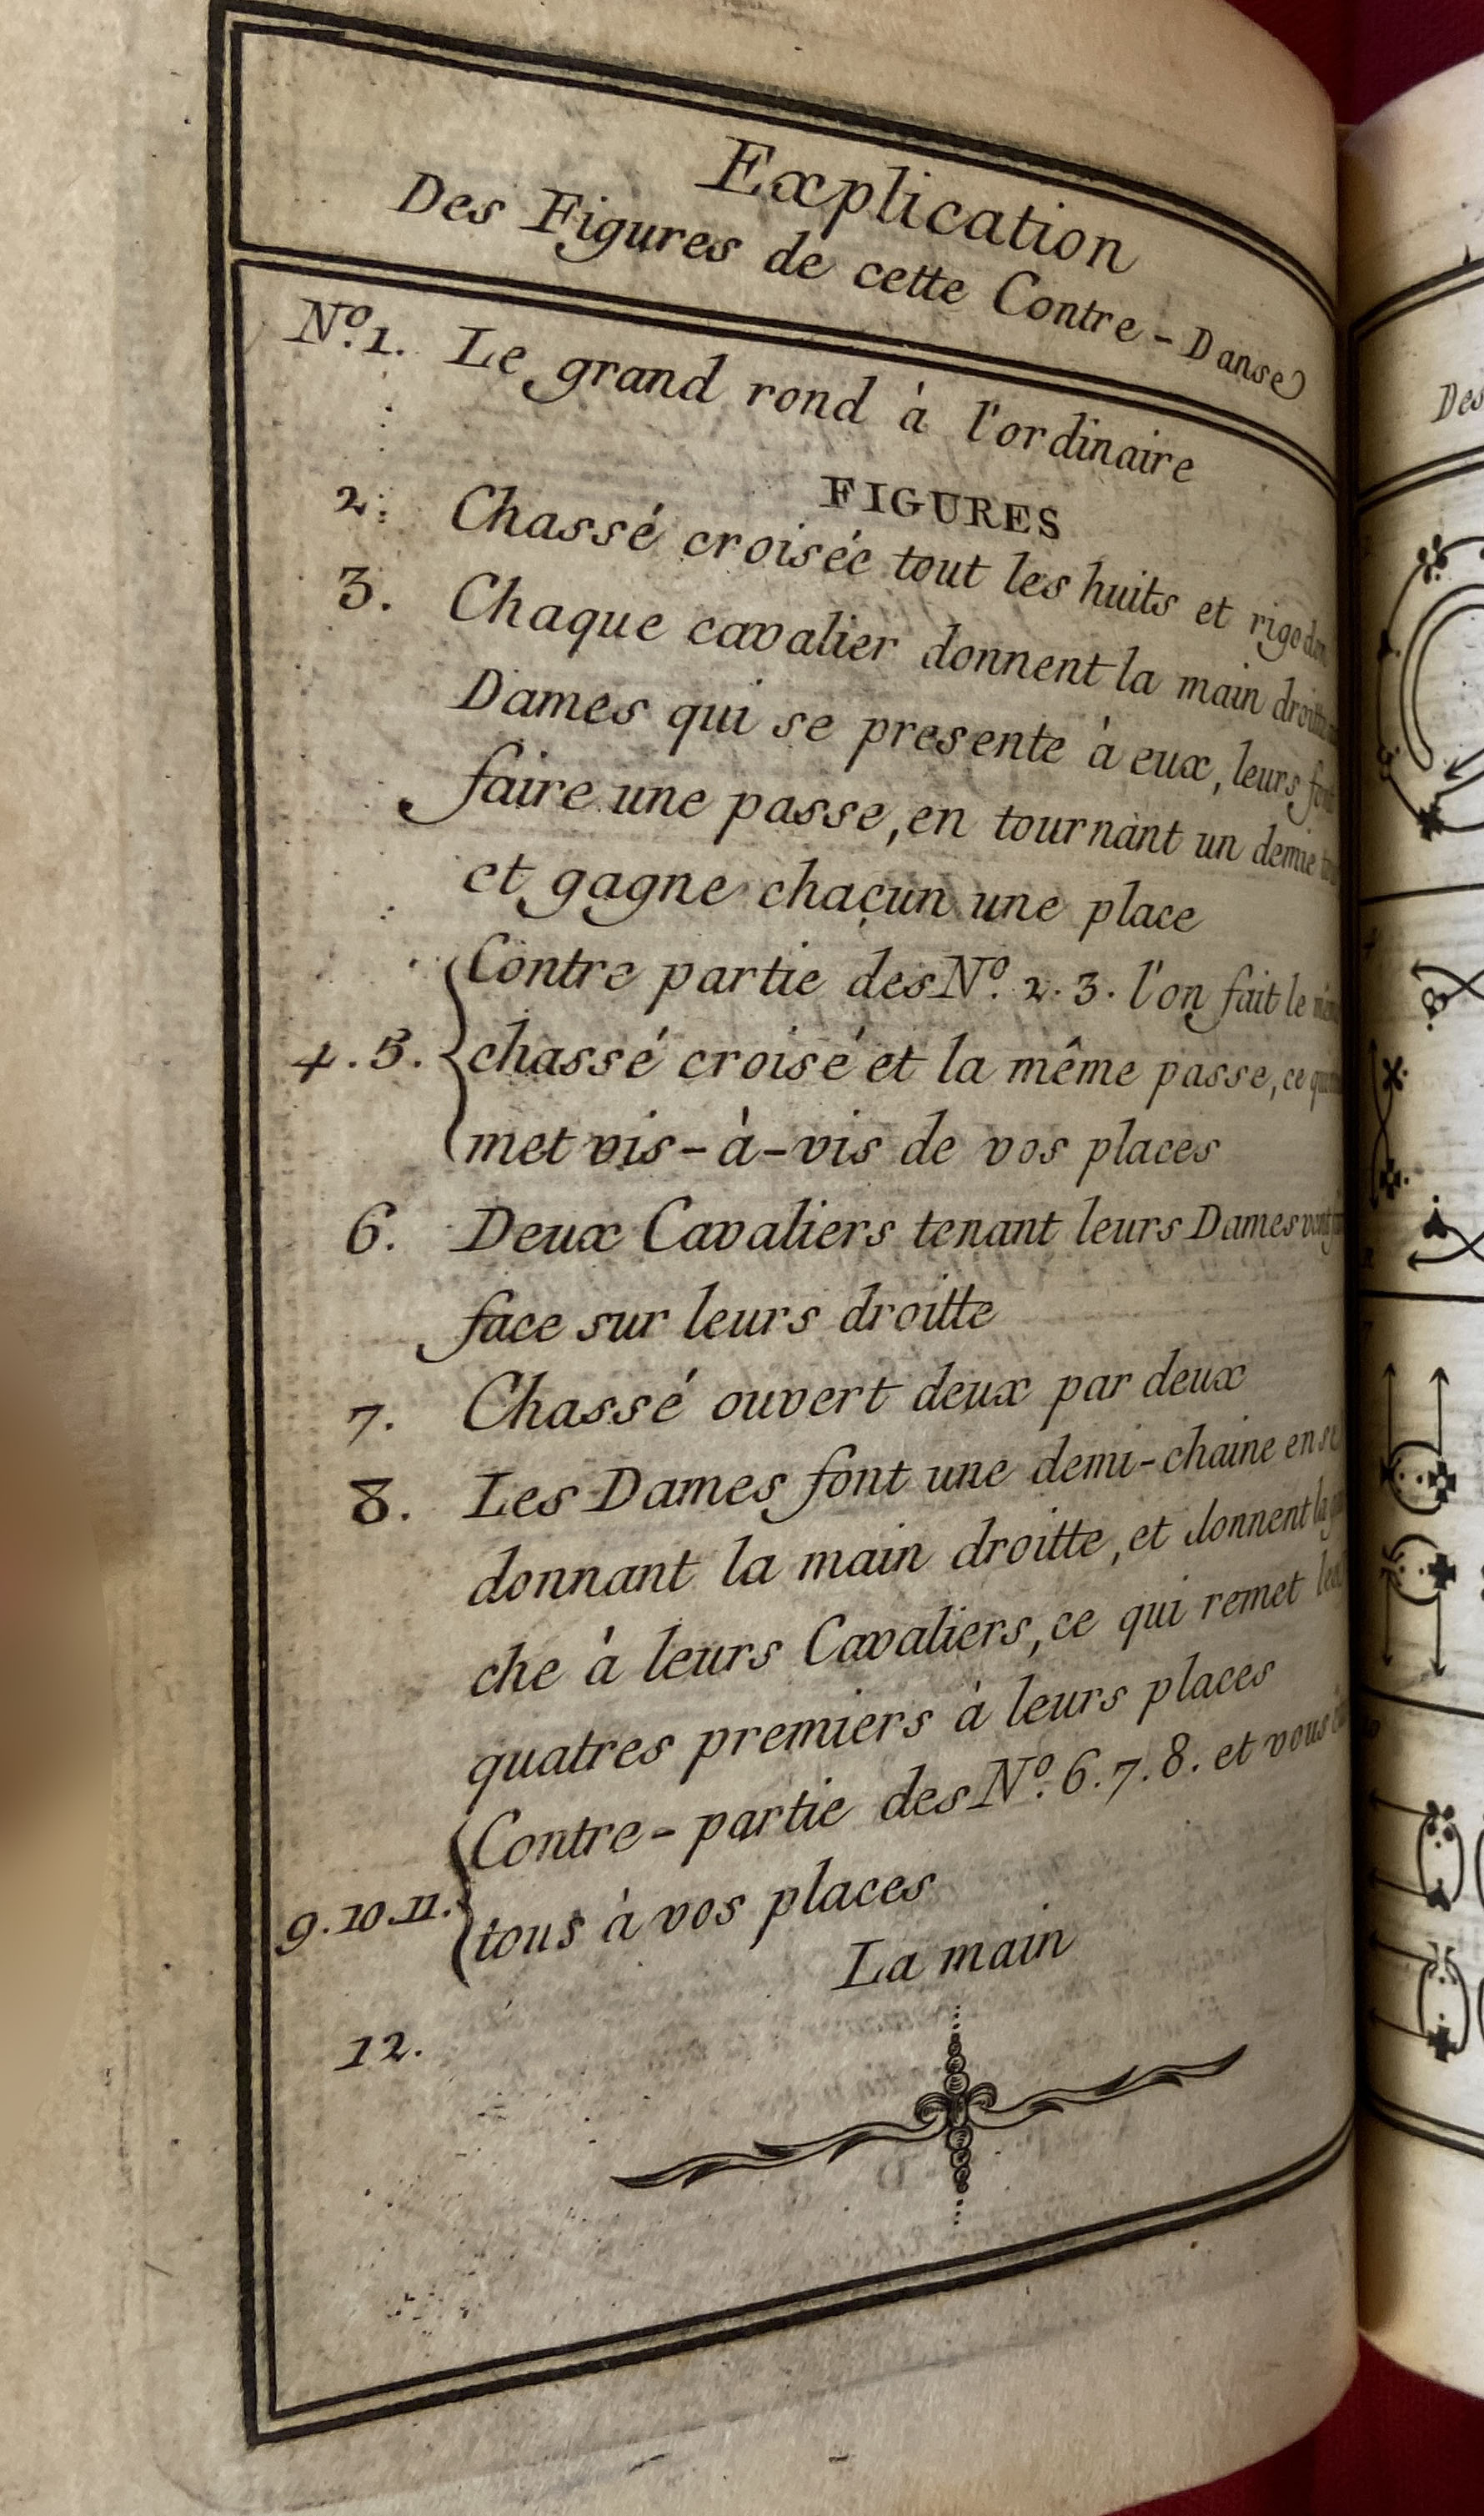 Explication
Des Figures de cette Contre-Danse
Nº. 1. Le grand rond à l'ordinaire
FIGURES
2. Chassé croisée tout les huits et rigodon
3. Chaque cavalier donnent la main droitte
Dames qui se presente à eux, leurs font
faire une passe, en tournant un demie
et gagne chacun une place
Contre partie des Nº. 2. 3. l'on fait le
4. 5. chassé croisé et la même passe, ce
met vis-à-vis de vos places
6. Deux Cavaliers tenant leurs Dames vont
face sur leurs droitte
7. Chassé ouvert deux par deux
8. Les Dames font une demi-chaine en se
donnant la main droitte, et donnent la
che à leurs Cavaliers, ce qui remet
quatres premiers à leurs places
Contre-partie des Nº. 6. 7. 8. et vous
9. 10. 11. tous à vos places
La main
12.
Des